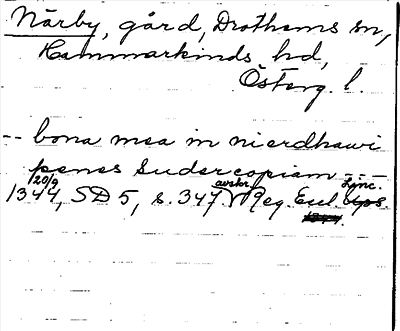 Närby, gård, Drothems sn,
Hammarkinds hd,
Österg. l.
-- bona mea in nierdhawi
penes Sudercopiam - - -
1344 20/9, SD 5, s. 347. avskr. Reg. Eccl. Linc.